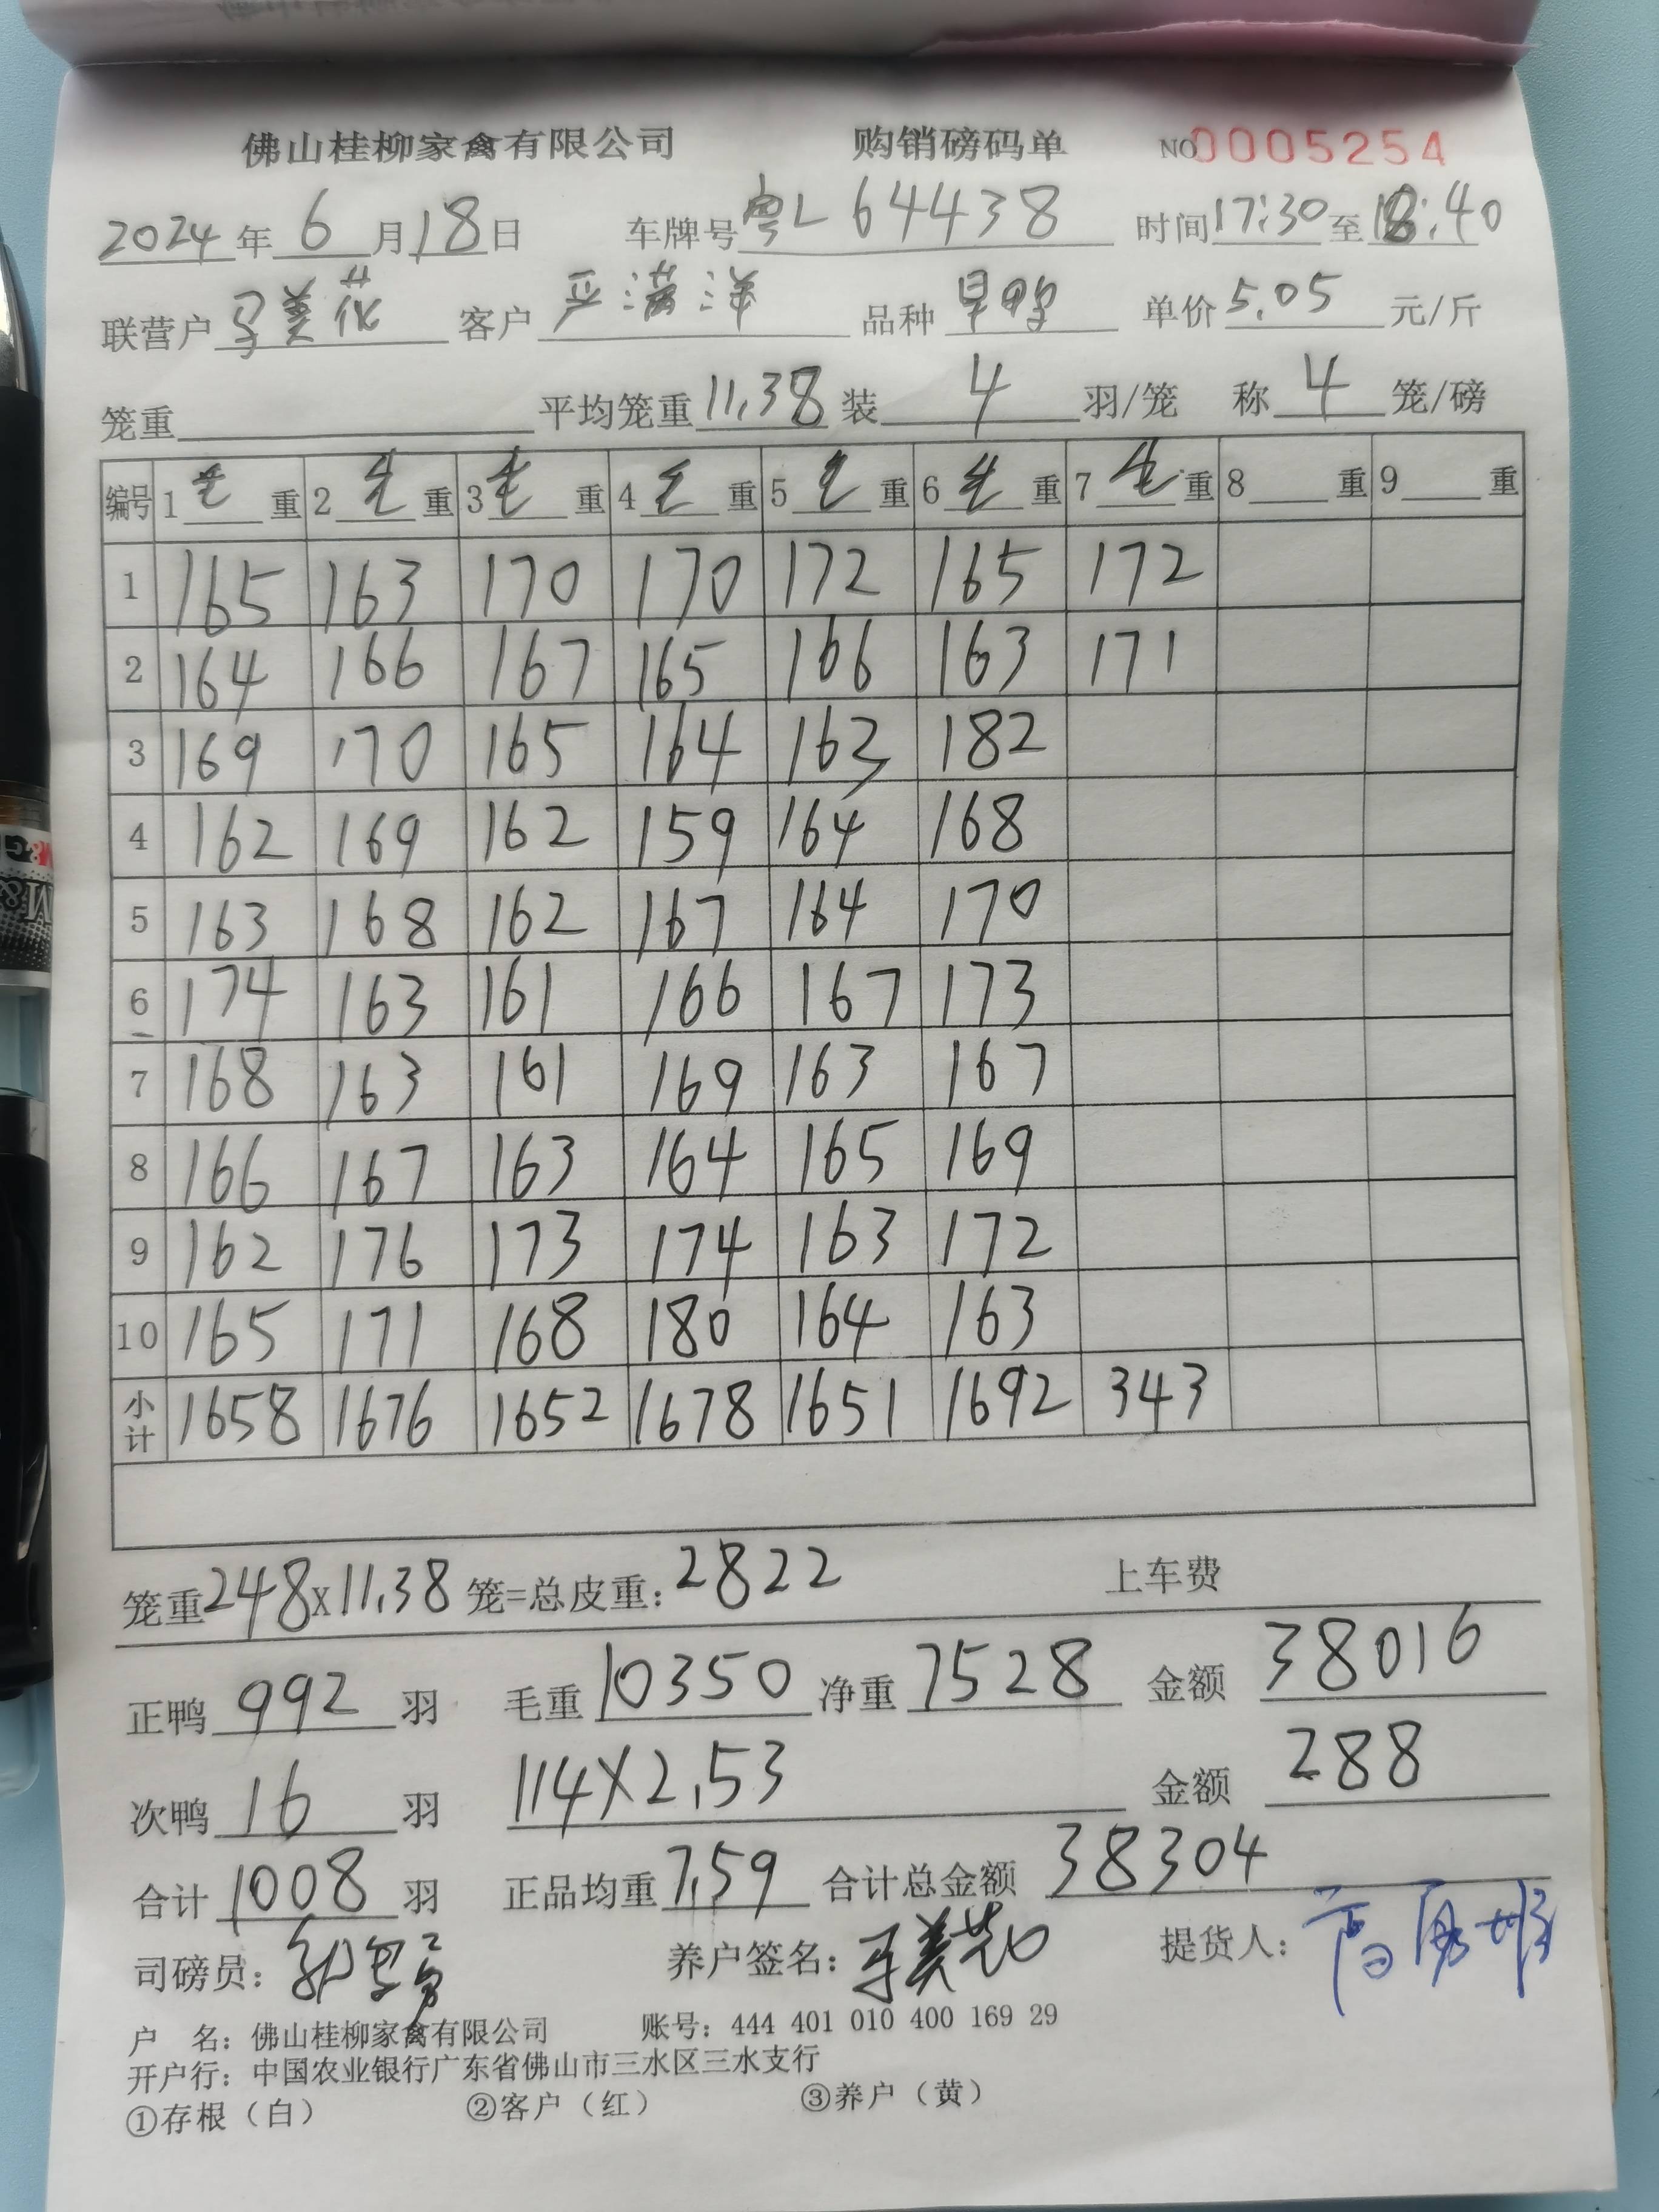 佛山桂柳家禽有限公司 购销磅码单 NO 0005254
2024年 6 月 18 日 车牌号 粤L 64438 时间 17:30 至 18:40
联营户 美花 客户 严满洋 品种 旱鸭 单价 5.05 元/斤
笼重 平均笼重 11.38 装 4 羽/笼 称 4 笼/磅
编号 1 毛 重 2 毛 重 3 毛 重 4 毛 重 5 毛 重 6 毛 重 7 毛 重 8 重 9 重
1 165 163 170 170 172 165 172
2 164 166 167 165 166 163 171
3 169 170 165 164 163 182
4 162 169 162 159 164 168
5 163 168 162 167 164 170
6 174 163 161 166 167 173
7 168 163 161 169 163 167
8 166 167 163 164 165 169
9 162 176 173 174 163 172
10 165 171 168 180 164 163
小计 1658 1676 1652 1678 1651 1692 343
笼重 248 x 11.38 笼=总皮重: 2822 上车费
正鸭 992 羽 毛重 10350 净重 7528 金额 38016
次鸭 16 羽 114 X 2.53 金额 288
合计 1008 羽 正品均重 7.59 合计总金额 38304
司磅员: 养户签名: 美花 提货人:
户 名: 佛山桂柳家禽有限公司 账号: 444 401 010 400 169 29
开户行: 中国农业银行广东省佛山市三水区三水支行
①存根（白） ②客户（红） ③养户（黄）